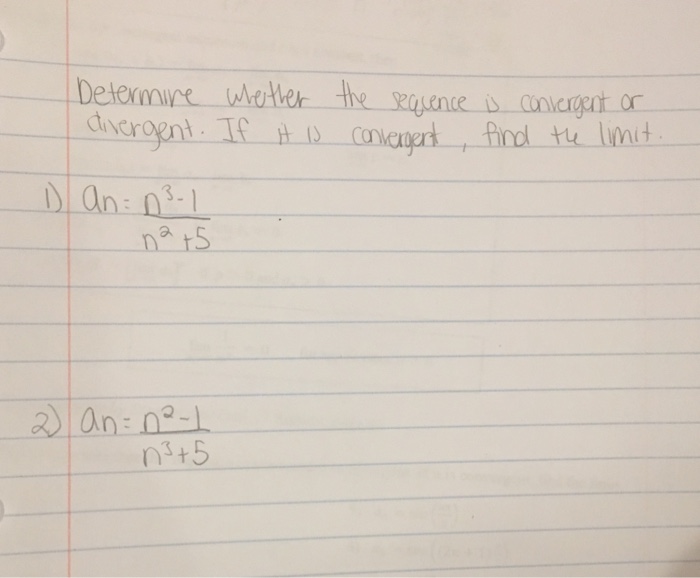 Determine whether the sequence is convergent or
divergent. If it is convergent, find the limit.
1) an = n³-1
n² +5
2) an = n²-1
n³+5